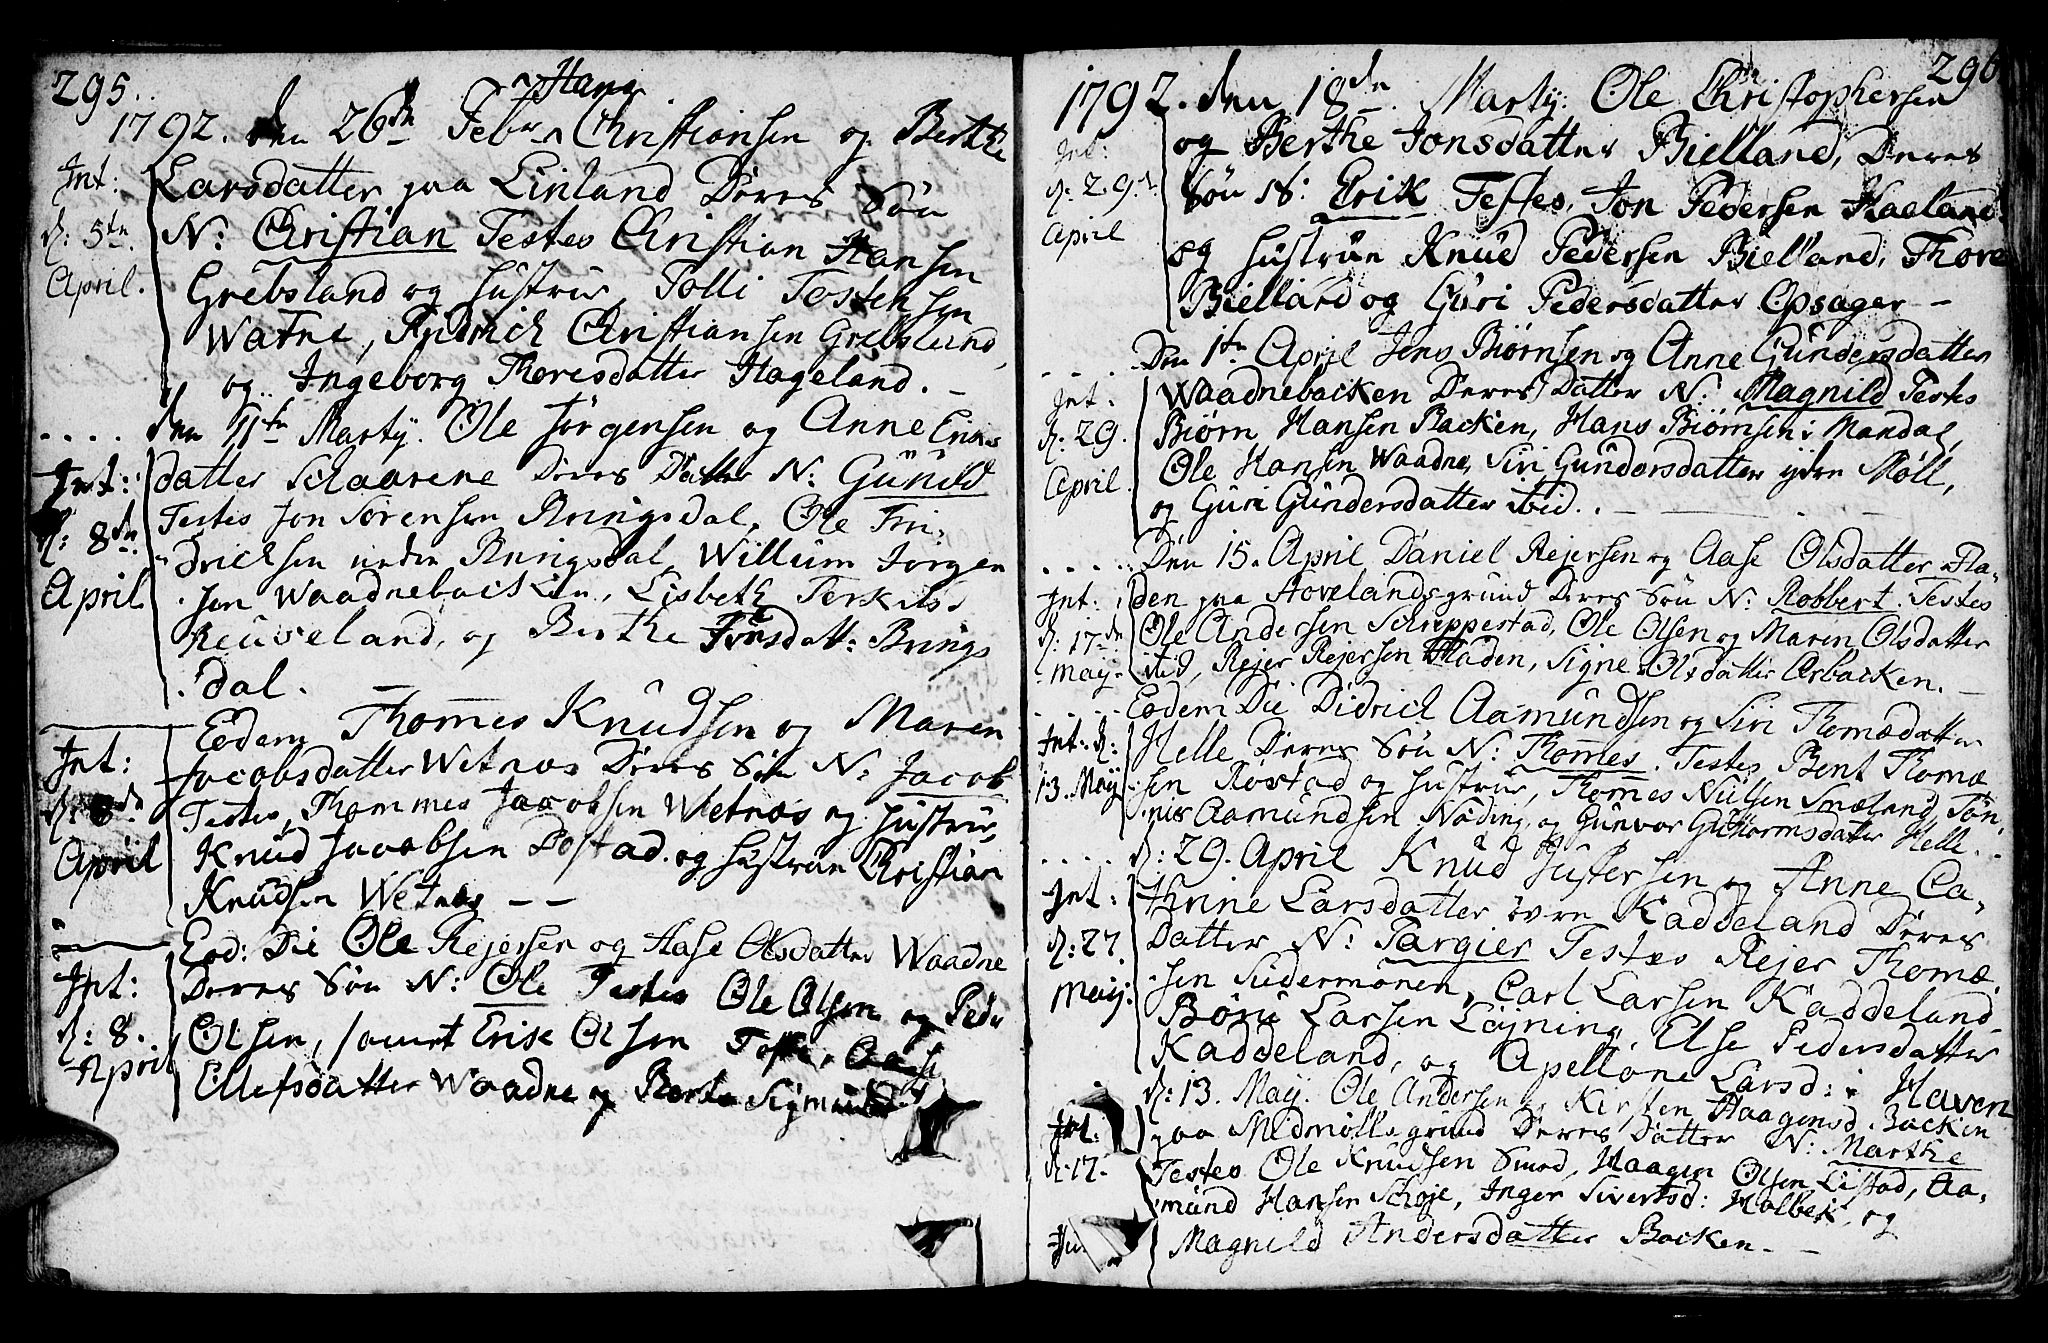 295.
Hans
1792. den 26de Febr Christiansen og Berthe
Int:
d: 5te
April.
Larsdatter paa Linland Deres Sön
N: Christian Testes Christian Hansen
Grebsland og Hustrue, Tolli Tostensen
Watne, Fridrich Christiansen Grebsland,
og Ingeborg Thoresdatter Hageland. –
den 11te Martij. Ole Jörgensen og Anne Eriks
Int:
d: 8de
April
datter Schaarene Deres Datter N: Gunild
Testes Jon Sörensen Bringsdal, Ole Fri-
drichsen neden Bringsdal, Willum Jorgen
sen Waadnebacken, Lisbeth Terkilsd
Reuveland, og Berthe Jonsdatt: Brings
dal. –
Eodem Thomes Knudsen og Maren
Int:
d: 8de
April
Jacobsdatter Wetnes Deres Sön N: Jacob
Testes, Thommes Jacobsen Wetnæs og Hustrue,
Knud Jacobsen Dostad og Hustrue Christian
Knudsen Wetnes – –
Eod: Die Ole Rejersen og Aase Olsdatter Waadne
Int:
d: 8.
April
Deres Sön N: Ole Testes Ole Olsen og Peder
Olsen, samt Erik Olsen Aase
Ellefsdatter Waadne og Berte Sigmunds
296
1792. den 18de. Martij. Ole Christophersen
Int:
d: 29de
April
og Berthe Jonsdatter Bielland, Deres
Sön N: Erik Testes, Jon Pedersen Haeland
og Hustrue Knud Pedersen Bielland, Thore
Bielland og Guri Pedersdatter Opsager –
Den 1te April Jens Biörnsen og Anne Gundersdatter
Int.
d: 29.
April.
Waadnebacken Deres Datter N: Magnild Testes
Biörn Hansen Backen, Hans Biörnsen i Mandal,
Ole Hansen Waadne, Siri Gundersdatter ydre Möll,
og Guri Gundersdatter ibid. –
Den 15. April Daniel Rejersen og Aase Olsdatter Fla-
Int:
d: 17de
May.
den paa Hovelandsgrund Deres Sön N: Robbert. Testes
Ole Andersen Schreppestad, Ole Olsen og Maren Olsdatter
ibid, Rejer Rejersen Fladen, Signe Olsdatter Orbacken. –
Eodem Die Didrich Aamundsen og Siri Thomædatter
Int: d:
13. May
Helle Deres Sön N: Thomes. Testes Bent Thomæ
sen Röstad og Hustrue, Thomes Nielsen Smæland, Tön-
nis Aamundsen Nöding, og Gunvor Guttormsdatter Helle.
d: 29. April Knud Justersen og Anne Ca-
Int:
d: 27.
May:
thrine Larsdatter övre Kaddeland Deres
Datter N: Targier Testes Rejer Thomæ
sen Sudermönen, Carl Larsen Kaddeland
Börie Larsen Löjning, Else Pedersdatter
Kaddeland, og Apellone Larsd: i Haven
d: 13. May. Ole Andersen og Kirsten Haagensd. Backen
Int:
d: 17.
paa Medmöllsgrund Deres Datter N: Marthe
Testes Ole Knudsen Smed, Haagen Olsen Listad, Aa-
mund Hansen Schöje, Inger Sivertsd: Holbek, og
Magnild Andersdatter Backen. –